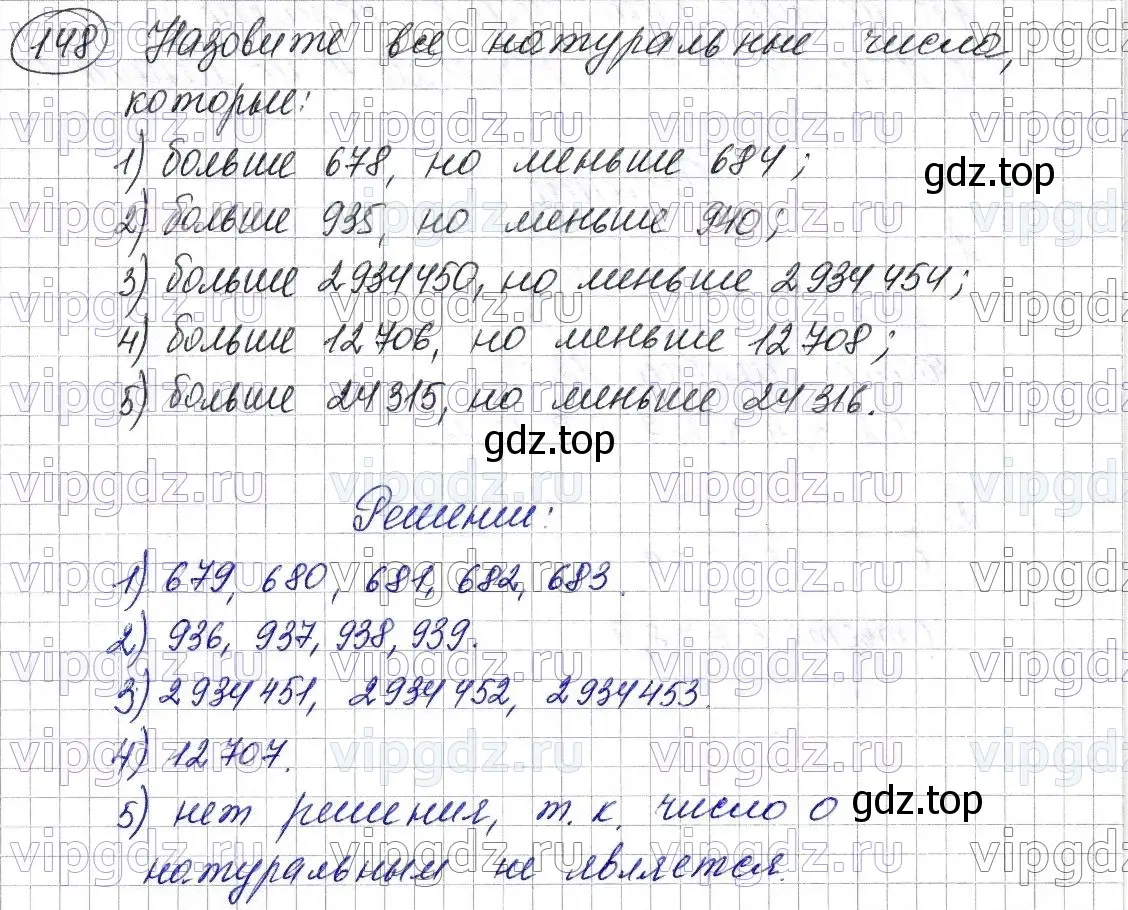 148 Назовите все натуральные числа,
которые:
1) больше 678, но меньше 684;
gdz.top
2) больше 935, но меньше 940;
3) больше 2 934 450, но меньше 2 934 454;
4) больше 12 706, но меньше 12 708;
5) больше 24 315, но меньше 24 316.
gdz.top
Решении:
1) 679, 680, 681, 682, 683.
2) 936, 937, 938, 939.
3) 2 934 451, 2 934 452, 2 934 453.
4) 12 707.
5) нет решения, т. к. число 0
gdz.top
натуральным не является.
vipgdz.ru